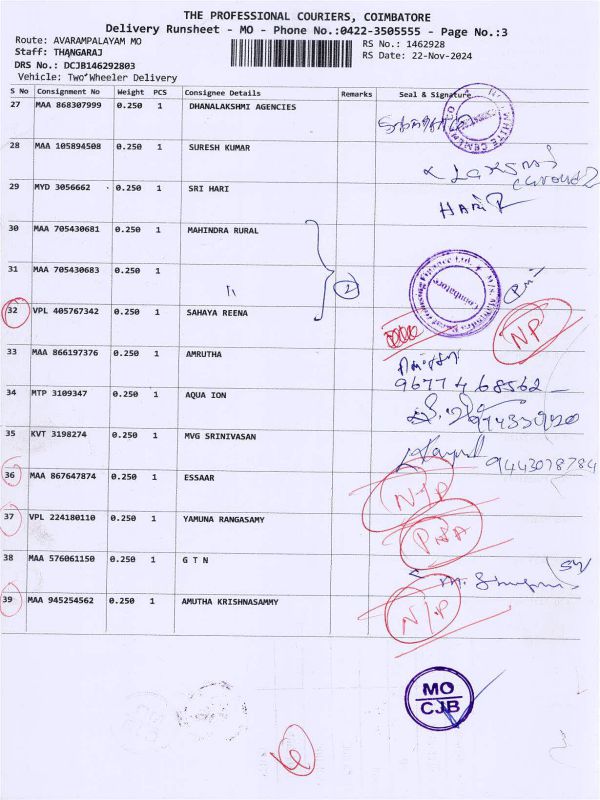 THE PROFESSIONAL COURIERS, COIMBATORE
Delivery Runsheet - MO - Phone No.:0422-3505555 - Page No.:3
Route: AVARAMPALAYAM MO
RS No.: 1462928
Staff: THANGARAJ
RS Date: 22-Nov-2024
DRS No.: DCJB146292803
Vehicle: Two Wheeler Delivery
S No Consignment No Weight PCS Consignee Details Remarks Seal & Signature
27 MAA 868307999 0.250 1 DHANALAKSHMI AGENCIES
28 MAA 105894508 0.250 1 SURESH KUMAR
29 MYD 3056662 0.250 1 SRI HARI
HARI
30 MAA 705430681 0.250 1 MAHINDRA RURAL
31 MAA 705430683 0.250 1 "
2
32 VPL 405767342 0.250 1 SAHAYA REENA NP
33 MAA 866197376 0.250 1 AMRUTHA
9677468562
34 MTP 3109347 0.250 1 AQUA ION
35 KVT 3198274 0.250 1 MVG SRINIVASAN
9443078784
36 MAA 867647874 0.250 1 ESSAAR N/P
37 VPL 224180110 0.250 1 YAMUNA RANGASAMY
38 MAA 576061150 0.250 1 G T N
39 MAA 945254562 0.250 1 AMUTHA KRISHNASAMMY N/P
MO
CJB